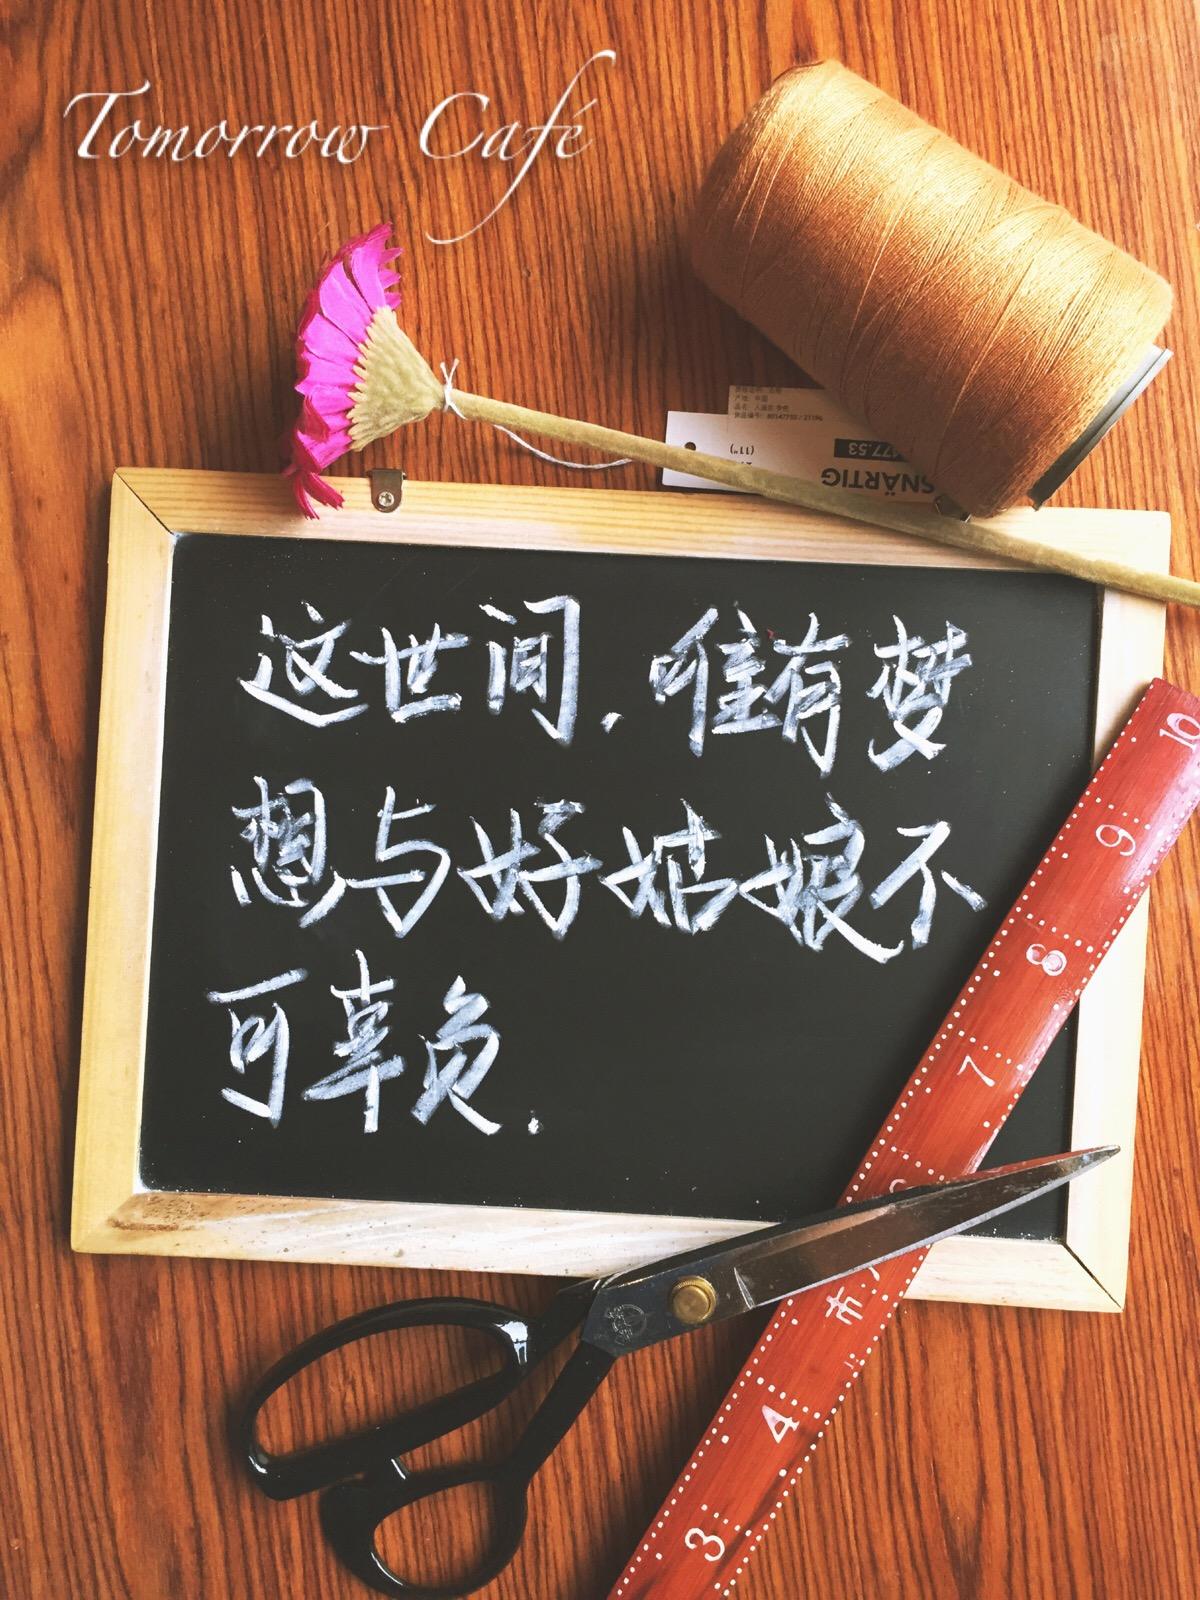 Tomorrow Café
产地: 中国
SNÄRTIG
这世间,唯有梦
想与好姑娘不
可辜负.
10
9
8
7
市
4
3